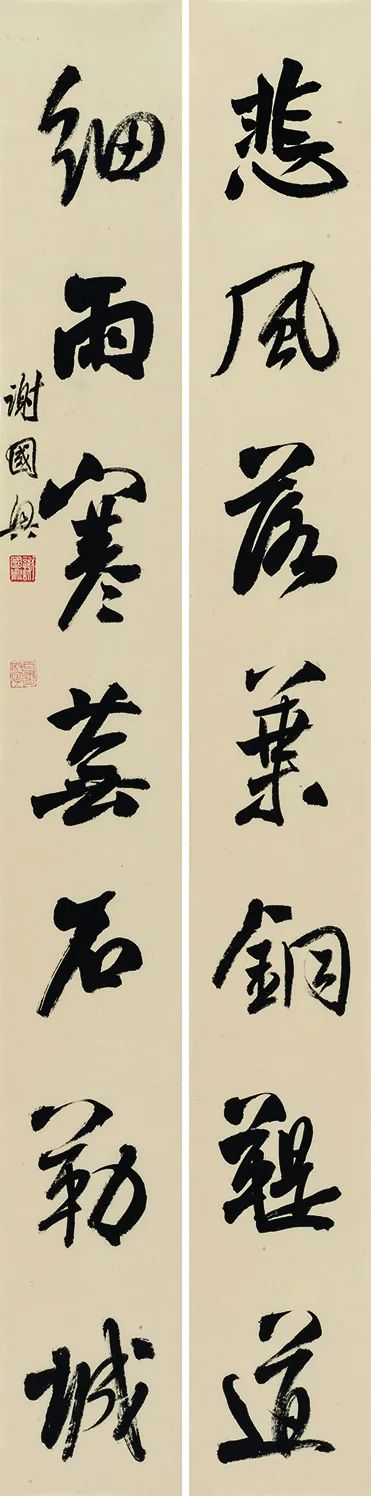 悲風落葉銅鞮道
細雨寒蕪石勒城
謝國興